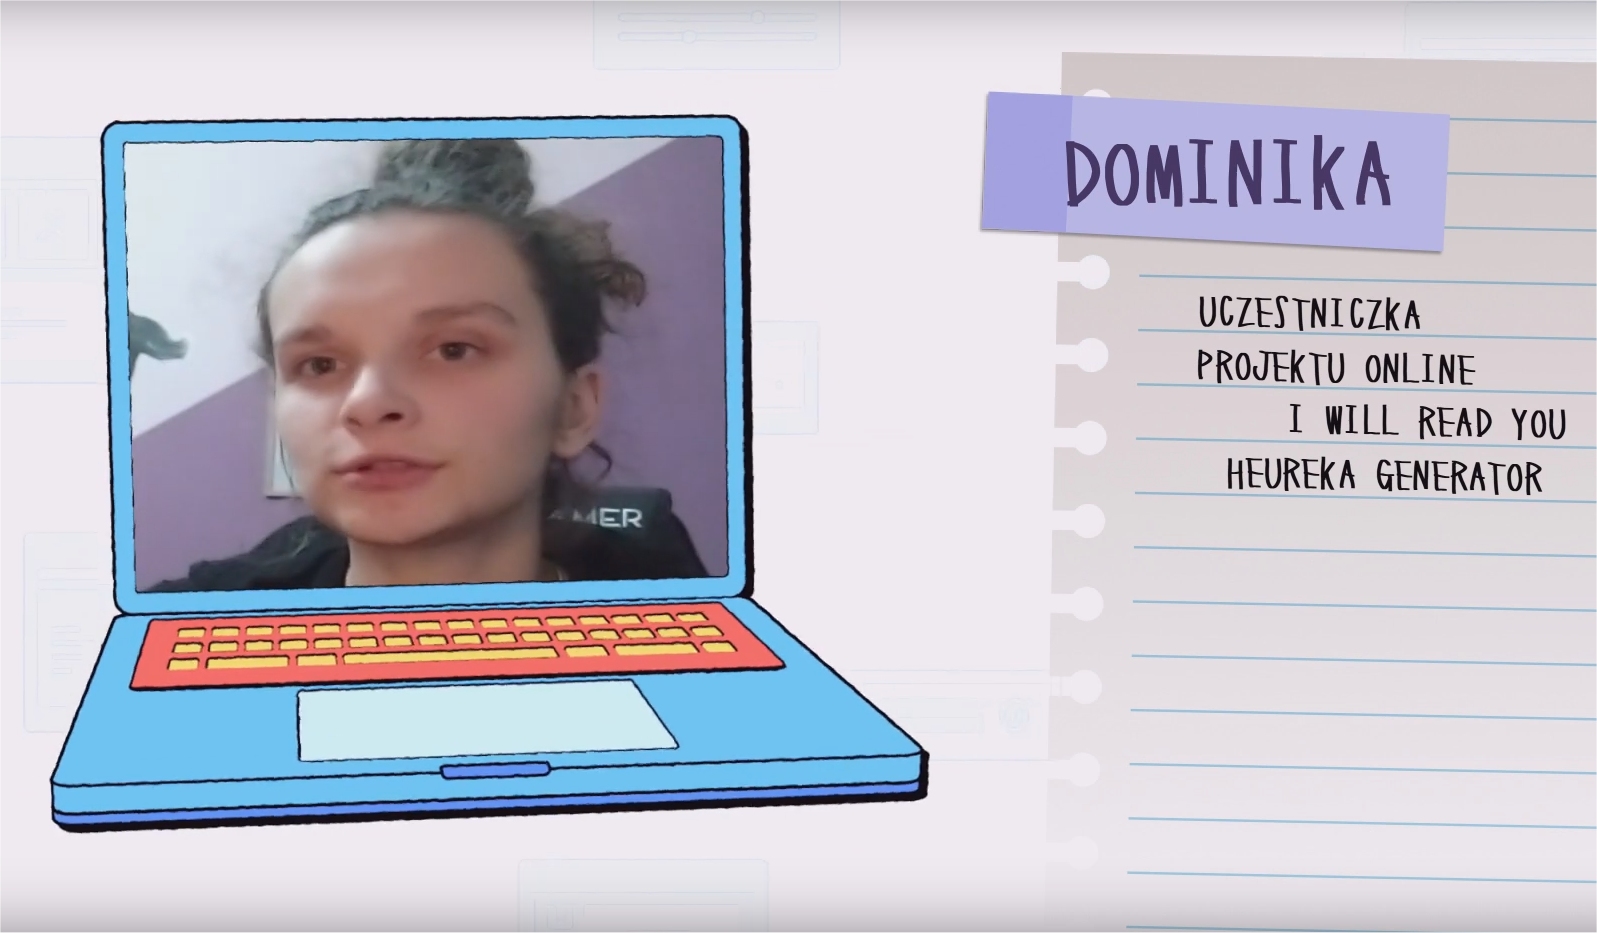 DOMINIKA
UCZESTNICZKA
PROJEKTU ONLINE
I WILL READ YOU
HEUREKA GENERATOR